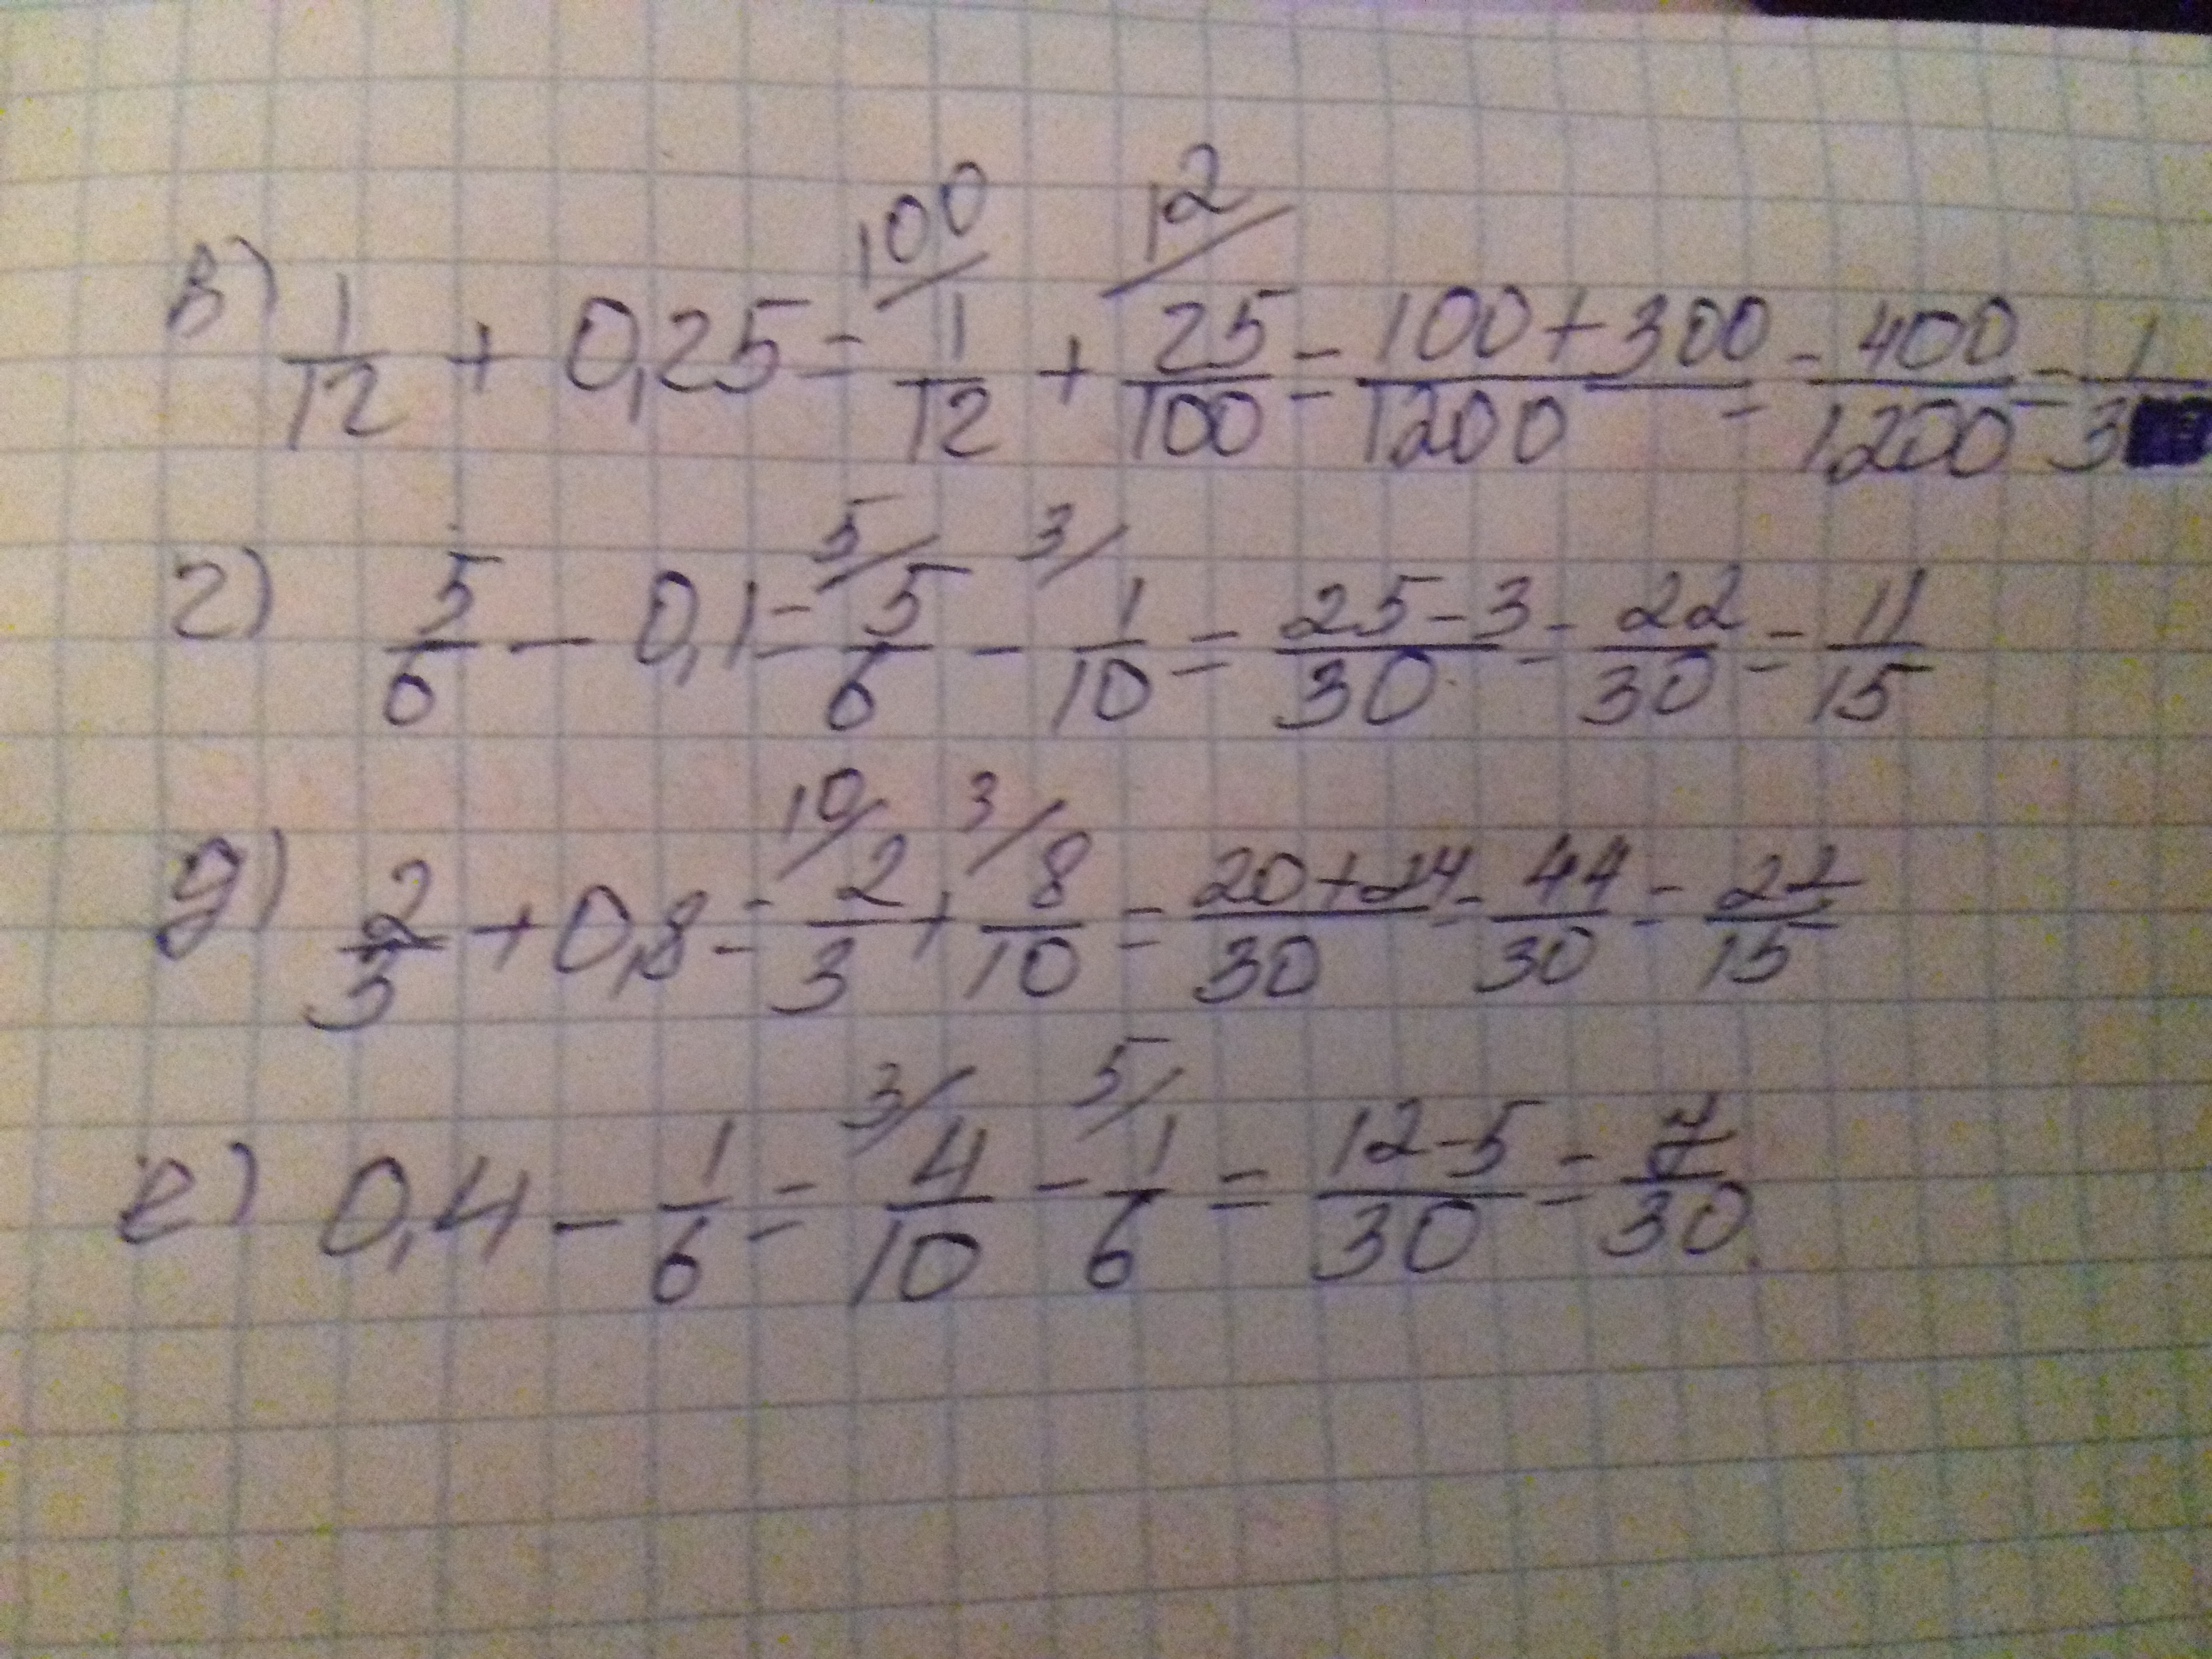 в) 1/12 + 0,25 = 100/ 1/12 + 12/ 25/100 = 100+300/1200 = 400/1200 = 1/3
г) 5/6 - 0,1 = 5/ 5/6 - 3/ 1/10 = 25-3/30 = 22/30 = 11/15
д) 2/3 + 0,8 = 10/ 2/3 + 3/ 8/10 = 20+24/30 = 44/30 = 22/15
е) 0,4 - 1/6 = 3/ 4/10 - 5/ 1/6 = 12-5/30 = 7/30.